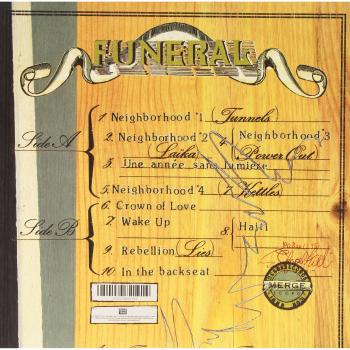 FUNERAL
Side A
1 Neighborhood #1 (Tunnels)
2. Neighborhood #2 (Laika)
3. Une année sans lumiere
4. Neighborhood #3 (Power Out)
Side B
5. Neighborhood #4 (7 Kettles)
6. Crown of Love
7. Wake Up
8. Haïti
9. Rebellion (Lies)
10. In the backseat
MERGE
RECORDS